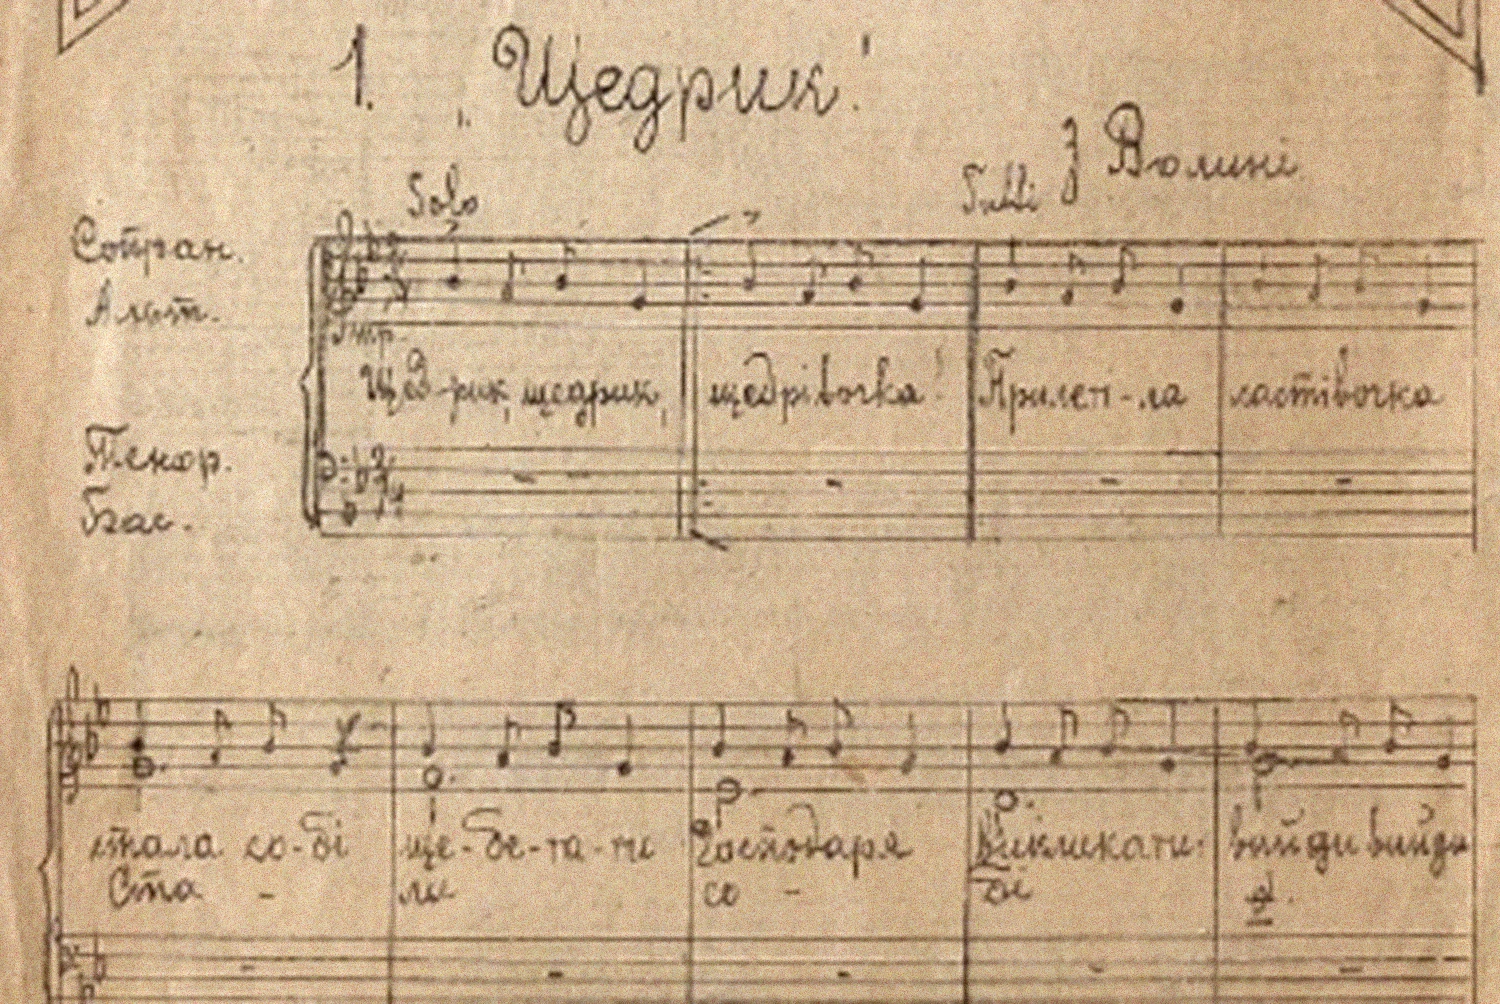 1. „Щедрик“
З Волині
Solo Tutti
Сопран.
Альт.
Щед-рик, щедрик, щедрівочка! Прилеті-ла ластівочка
Тенор.
Бас.
стала со-бі ще-бе-та-ти господаря викликати. вийди вийди
Ста - ла со - бі